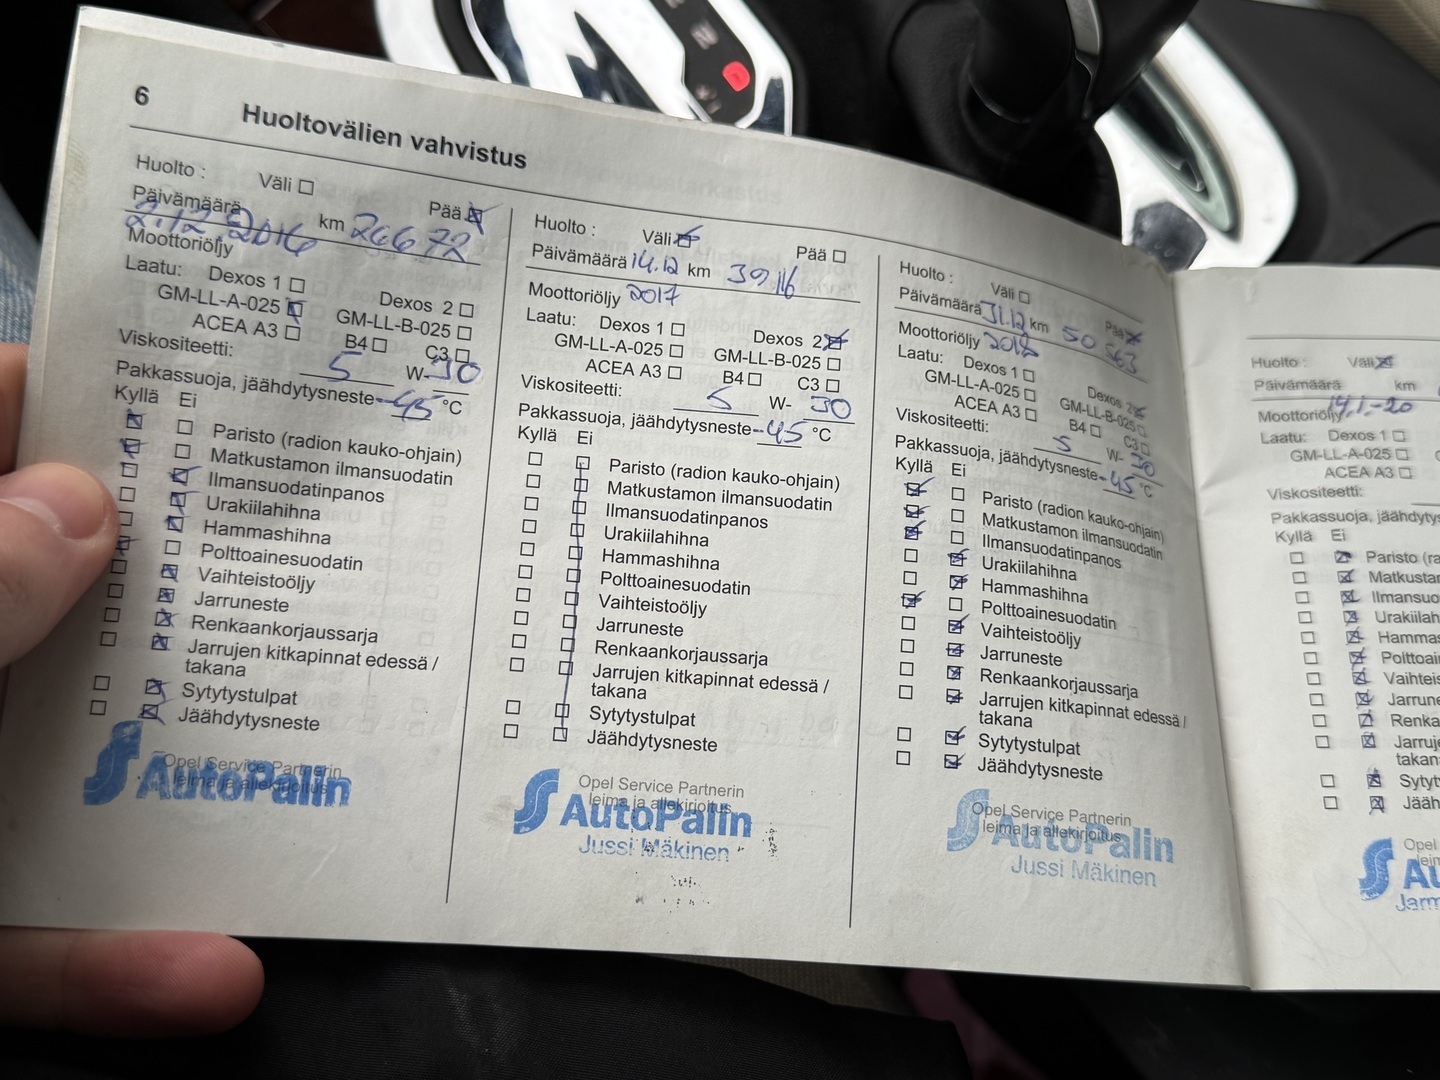 6 Huoltovälien vahvistus
Huolto : Väli Pää
Päivämäärä 2.12.2016 km 26672
Moottoriöljy
Laatu: Dexos 1 Dexos 2
GM-LL-A-025 GM-LL-B-025
ACEA A3 B4 C3
Viskositeetti: 5 W-30
Pakkassuoja, jäähdytysneste -45 °C
Kyllä Ei
Paristo (radion kauko-ohjain)
Matkustamon ilmansuodatin
Ilmansuodatinpanos
Urakiilahihna
Hammashihna
Polttoainesuodatin
Vaihteistoöljy
Jarruneste
Renkaankorjaussarja
Jarrujen kitkapinnat edessä /
takana
Sytytystulpat
Jäähdytysneste
Opel Service Partnerin
leima ja allekirjoitus
AutoPalin
Huolto : Väli Pää
Päivämäärä 14.12 km 39116
Moottoriöljy 2017
Laatu: Dexos 1 Dexos 2
GM-LL-A-025 GM-LL-B-025
ACEA A3 B4 C3
Viskositeetti: 5 W- 30
Pakkassuoja, jäähdytysneste -45 °C
Kyllä Ei
Paristo (radion kauko-ohjain)
Matkustamon ilmansuodatin
Ilmansuodatinpanos
Urakiilahihna
Hammashihna
Polttoainesuodatin
Vaihteistoöljy
Jarruneste
Renkaankorjaussarja
Jarrujen kitkapinnat edessä /
takana
Sytytystulpat
Jäähdytysneste
Opel Service Partnerin
leima ja allekirjoitus
AutoPalin
Jussi Mäkinen
Huolto : Väli Pää
Päivämäärä 31.12 km 50 563
Moottoriöljy 2018
Laatu: Dexos 1 Dexos 2
GM-LL-A-025 GM-LL-B-025
ACEA A3 B4 C3
Viskositeetti: 5 W- 30
Pakkassuoja, jäähdytysneste -45 °C
Kyllä Ei
Paristo (radion kauko-ohjain)
Matkustamon ilmansuodatin
Ilmansuodatinpanos
Urakiilahihna
Hammashihna
Polttoainesuodatin
Vaihteistoöljy
Jarruneste
Renkaankorjaussarja
Jarrujen kitkapinnat edessä /
takana
Sytytystulpat
Jäähdytysneste
Opel Service Partnerin
leima ja allekirjoitus
AutoPalin
Jussi Mäkinen
Huolto : Väli
Päivämäärä km
Moottoriöljy 14.1.-20
Laatu: Dexos 1
GM-LL-A-025
ACEA A3
Viskositeetti:
Pakkassuoja, jäähdytys
Kyllä Ei
Paristo (ra
Matkusta
Ilmansuo
Urakiilah
Hammas
Polttoai
Vaihteis
Jarrune
Renka
Jarruje
takan
Sytyt
Jääh
Opel
leim
Au
Jarm